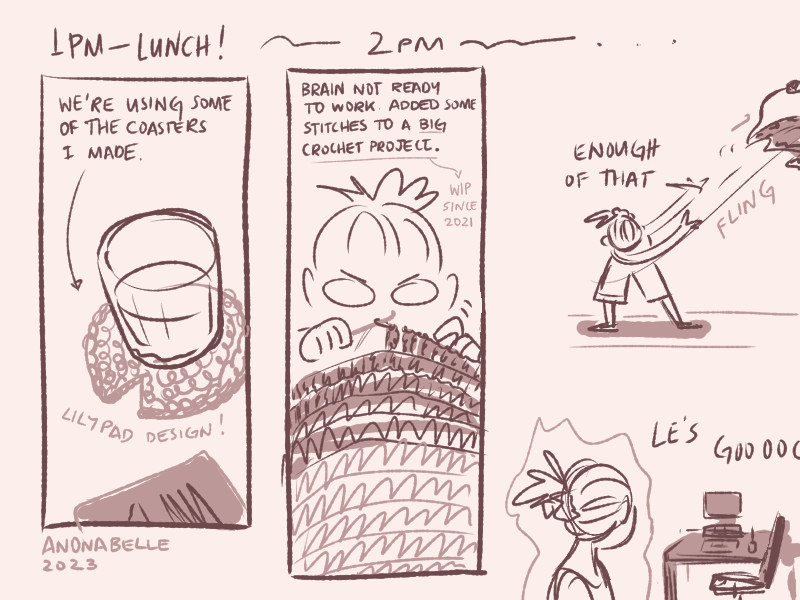 1PM - LUNCH!
2PM
WE'RE USING SOME
OF THE COASTERS
I MADE.
LILYPAD DESIGN!
ANONABELLE
2023
BRAIN NOT READY
TO WORK. ADDED SOME
STITCHES TO A BIG
CROCHET PROJECT.
WIP
SINCE
2021
ENOUGH
OF THAT
FLING
LE'S GOOOOO